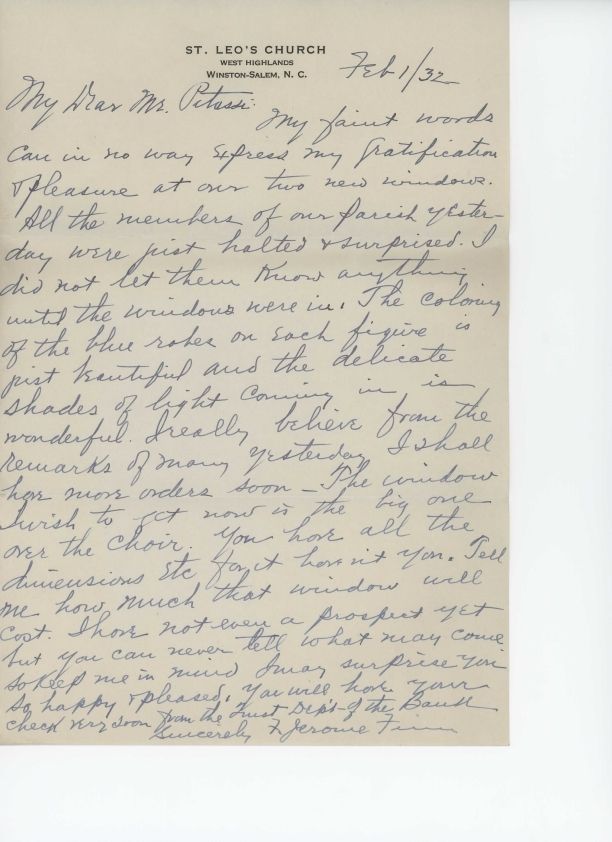 ST. LEO'S CHURCH
WEST HIGHLANDS
WINSTON-SALEM, N. C.
Feb 1/32
My Dear Mr. Pitassi.
My faint words
can in no way express my gratification
& pleasure at our two new windows.
All the members of our parish yester-
day were just halted & surprised. I
did not let them know anything
until the windows were in. The coloring
of the blue robes on each figure is
just beautiful and the delicate
shades of light coming in is
wonderful. I really believe from the
remarks of many yesterday I shall
have more orders soon — The window
I wish to get now is the big one
over the choir. You have all the
dimensions etc for it have n't you. Tell
me how much that window will
cost. I have not even a prospect yet
but you can never tell what may come
so keep me in mind I may surprise you
So happy & pleased. You will have your
check very soon from the Trust Dept. of the Bank
Sincerely F Jerome Finn